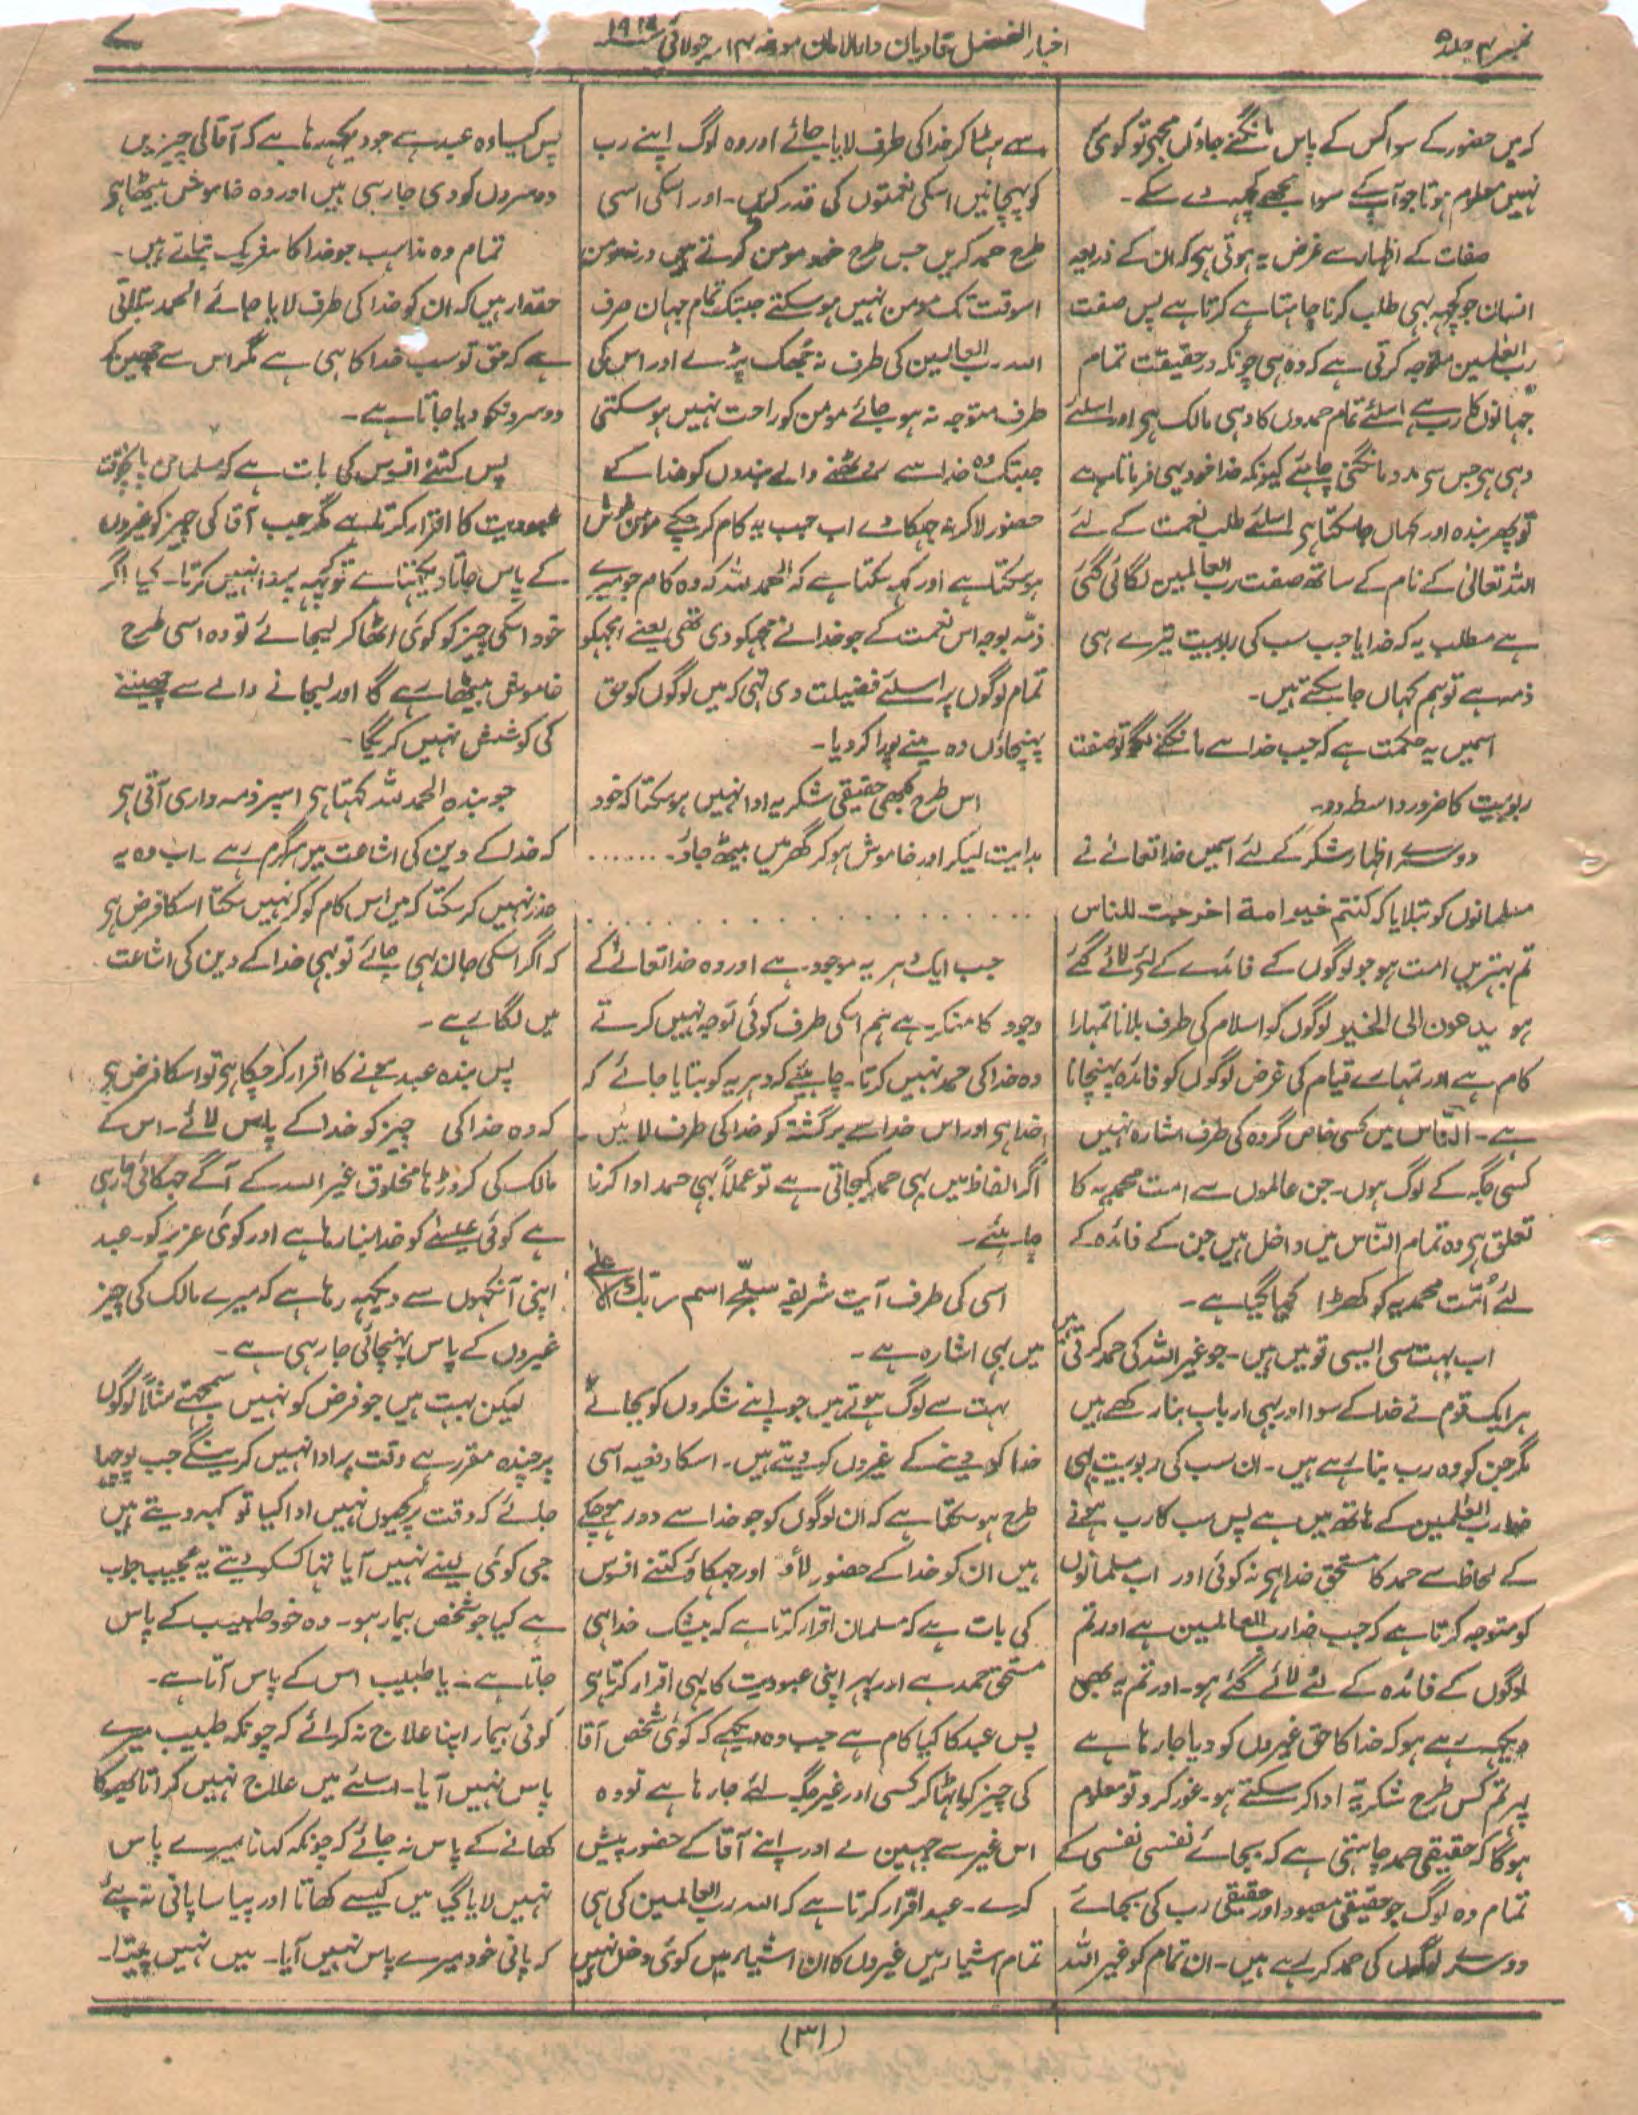 نمبر ۴ جلد ۵
اخبار الفضل قادیان دارالامان مورخہ ۱۴ جولائی ۱۹۱۷
۷
کہ میں حضور کے سوا کس کے پاس مانگنے جاؤں مجھے تو کوئی
نہیں معلوم ہوتا جو آپ کے سوا مجھے کچھ دے سکے۔
صفات کے اظہار سے غرض یہ ہوتی ہی کہ ان کے ذریعہ
انسان جو کچھ بھی طلب کرنا چاہتا ہے کرتا ہے پس صفت
رب العلمین متوجہ کرتی ہے کہ وہ ہی چونکہ درحقیقت تمام
جہانوں کا رب ہے اسلئے تمام حمدوں کا وہی مالک ہی اور اسلئے
وہی ہی جس سی مدد مانگنی چاہئے کیونکہ خدا خود یہی فرماتا ہے
تو پھر بندہ اور کہاں جا سکتا ہی اسلئے طلب نعمت کے لئے
اللہ تعالیٰ کے نام کے ساتھ صفت رب العالمین لگائی گئی
ہے مطلب یہ کہ خدایا جب سب کی ربوبیت تیرے ہی
ذمہ ہے تو ہم کہاں جا سکتے ہیں۔
اسمیں یہ حکمت ہے کہ جب خدا سے مانگنے لگو تو صفت
ربوبیت کا ضرور واسطہ دو۔
دوسرے اظہار شکر کے لئے اسمیں خدا تعالےٰ نے
مسلمانوں کو بتلایا کہ کنتم خیر امة اخرجت للناس
تم بہترین امت ہو جو لوگوں کے فائدے کے لئے لائے گئے
ہو یدعون الی الخیر لوگوں کو اسلام کی طرف بلانا تمہارا
کام ہے اور تمہارے قیام کی غرض لوگوں کو فائدہ پہنچانا
ہے۔ النّاس میں کسی خاص گروہ کی طرف اشارہ نہیں
کسی جگہ کے لوگ ہوں۔ جن عالموں سے امت محمدیہ کا
تعلق ہی وہ تمام النّاس میں داخل ہیں جن کے فائدہ کے
لئے اُمّت محمدیہ کو کھڑا کیا گیا ہے۔
اب بہت سی ایسی قومیں ہیں۔ جو غیر اللہ کی حمد کرتی ہیں
ہر ایک قوم نے خدا کے سوا اور بھی ارباب بنا رکھے ہیں
مگر جن کو وہ رب بنا رہے ہیں۔ ان سب کی ربوبیت بھی
خدا رب العٰلمین کے ہاتھ میں ہے پس سب کا رب ہونے
کے لحاظ سے حمد کا مستحق خدا ہی نہ کوئی اور اب مسلمانوں
کو متوجہ کرتا ہے کہ جب خدا رب العالمین ہے اور تم
لوگوں کے فائدہ کے لئے لائے گئے ہو۔ اور تم یہ بھی
دیکھ رہے ہو کہ خدا کا حق غیروں کو دیا جا رہا ہے
پھر تم کس طرح شکریہ ادا کر سکتے ہو۔ غور کرو تو معلوم
ہوگا کہ حقیقی حمد چاہتی ہے کہ بجائے نفسی نفسی کے
تمام وہ لوگ جو حقیقی معبود اور حقیقی رب کی بجائے
دوسرے لوگوں کی حمد کر رہے ہیں۔ ان تمام کو غیر اللہ
سے ہٹا کر خدا کی طرف لایا جائے اور وہ لوگ اپنے رب
کو پہچانیں اسکی نعمتوں کی قدر کریں۔ اور اسکی اسی
طرح حمد کریں جس طرح خود مومن کرتے ہیں ورنہ مومن
اسوقت تک مومن نہیں ہو سکتے جبتک تمام جہان صرف
اللہ رب العالمین کی طرف نہ جُھک پڑے اور اس کی
طرف متوجہ نہ ہو جائے مومن کو راحت نہیں ہو سکتی
جبتک وہ خدا سے روٹھنے والے بندوں کو خدا کے
حضور لا کر نہ جھکا دے اب جب یہ کام کر چکے مومن خوش
ہو سکتا ہے اور کہہ سکتا ہے کہ الحمد للہ کہ وہ کام جو میرے
ذمّہ بوجہ اس نعمت کے جو خدا نے مجھکو دی تھی یعنے مجھکو
تمام لوگوں پر اسلئے فضیلت دی تھی کہ میں لوگوں کو حق
پہنچاؤں وہ مینے پورا کر دیا۔
اس طرح کبھی حقیقی شکریہ ادا نہیں ہو سکتا کہ خود
ہدایت لیکر اور خاموش ہو کر گھر میں بیٹھ جاؤ۔ . . . . . . .
. . . . . . . . . . . . . . . . . . . .
جب ایک دہریہ موجود ہے اور وہ خدا تعالےٰ کے
وجود کا منکر ہے ہم اسکی طرف کوئی توجہ نہیں کرتے
وہ خدا کی حمد نہیں کرتا۔ چاہیئے کہ دہریہ کو بتایا جائے کہ
خدا ہی اور اس خدا سے برگشتہ کو خدا کی طرف لائیں۔
اگر الفاظ میں بھی حمد کیجاتی ہے تو عملاً بھی حمد ادا کرنا
چاہئے۔
اسی کی طرف آیت شریفہ سبّح اسم ربّك الاعلےٰ
میں بھی اشارہ ہے۔
بہت سے لوگ ہوتے ہیں جو اپنے شکروں کو بجائے
خدا کو دینے کے غیروں کو دیتے ہیں۔ اسکا دفعیہ اسی
طرح ہو سکتا ہے کہ ان لوگوں کو جو خدا سے دور ہو چکے
ہیں ان کو خدا کے حضور لاؤ اور جھکاؤ کتنے افسوس
کی بات ہے کہ مسلمان اقرار کرتا ہے کہ بیشک خدا ہی
مستحق حمد ہے اور پھر اپنی عبودیت کا بھی اقرار کرتا ہی
پس عبد کا کیا کام ہے جب وہ دیکھے کہ کوئی شخص آقا
کی چیز کو اٹھا کر کسی اور غیر جگہ لئے جا رہا ہے تو وہ
اس غیر سے چھین لے اور اپنے آقا کے حضور پیش
کرے۔ عبد اقرار کرتا ہے کہ اللہ رب العالمین کی ہی
تمام اشیاء ہیں غیروں کا ان اشیاء میں کوئی دخل نہیں
پس کیسا وہ عبد ہے جو دیکھ رہا ہے کہ آقا کی چیزیں
دوسروں کو دی جا رہی ہیں اور وہ خاموش بیٹھا ہی
تمام وہ مذاہب جو خدا کا شریک بناتے ہیں۔
حقدار ہیں کہ ان کو خدا کی طرف لایا جائے الحمد بتلاتی
ہے کہ حق تو سب خدا کا ہی ہے مگر اس سے چھین کر
دوسرونکو دیا جاتا ہے۔
پس کتنے افسوس کی بات ہے کہ مسلمان پانچوقت
عبودیت کا اقرار کرتا ہے مگر جب آقا کی چیز کو غیروں
کے پاس جاتا دیکھتا ہے تو کچھ پروا نہیں کرتا۔ کیا اگر
خود اسکی چیز کو کوئی اٹھا کر لیجائے تو وہ اسی طرح
خاموش بیٹھا رہے گا اور لیجانے والے سے چھیننے
کی کوشش نہیں کریگا۔
جو بندہ الحمد للہ کہتا ہی اسپر ذمہ داری آتی ہی
کہ خدا کے دین کی اشاعت میں سرگرم رہے۔ اب وہ یہ
عذر نہیں کر سکتا کہ میں اس کام کو کر نہیں سکتا اسکا فرض ہی
کہ اگر اسکی جان بھی جائے تو بھی خدا کے دین کی اشاعت
میں لگا رہے۔
پس بندہ عبد ہونے کا اقرار کر چکا ہی تو اسکا فرض ہی
کہ وہ خدا کی چیز کو خدا کے پاس لائے۔ اس کے
مالک کی کروڑہا مخلوق غیر اللہ کے آگے جھکائی جا رہی
ہے کوئی عیسیٰ کو خدا بنا رہا ہے اور کوئی عزیر کو۔ عبد
اپنی آنکھوں سے دیکھ رہا ہے کہ میرے مالک کی چیز
غیروں کے پاس پہنچائی جا رہی ہے۔
لیکن بہت ہیں جو فرض کو نہیں سمجھتے مثلاً لوگوں
پر چندہ مقرر ہے وقت پر ادا نہیں کرینگے جب پوچھا
جائے کہ وقت پر کیوں نہیں ادا کیا تو کہہ دیتے ہیں
جی کوئی لینے نہیں آیا تھا کسکو دیتے یہ عجیب جواب
ہے کیا جو شخص بیمار ہو۔ وہ خود طبیب کے پاس
جاتا ہے۔ یا طبیب اس کے پاس آتا ہے۔
کوئی بیمار اپنا علاج نہ کرائے کہ چونکہ طبیب میرے
پاس نہیں آیا۔ اسلئے میں علاج نہیں کراتا بھوکا
کھانے کے پاس نہ جائے کہ چونکہ کھانا میرے پاس
نہیں لایا گیا میں کیسے کھاتا اور پیاسا پانی نہ پئے
کہ پانی خود میرے پاس نہیں آیا۔ میں نہیں پیتا۔
(۳۱)